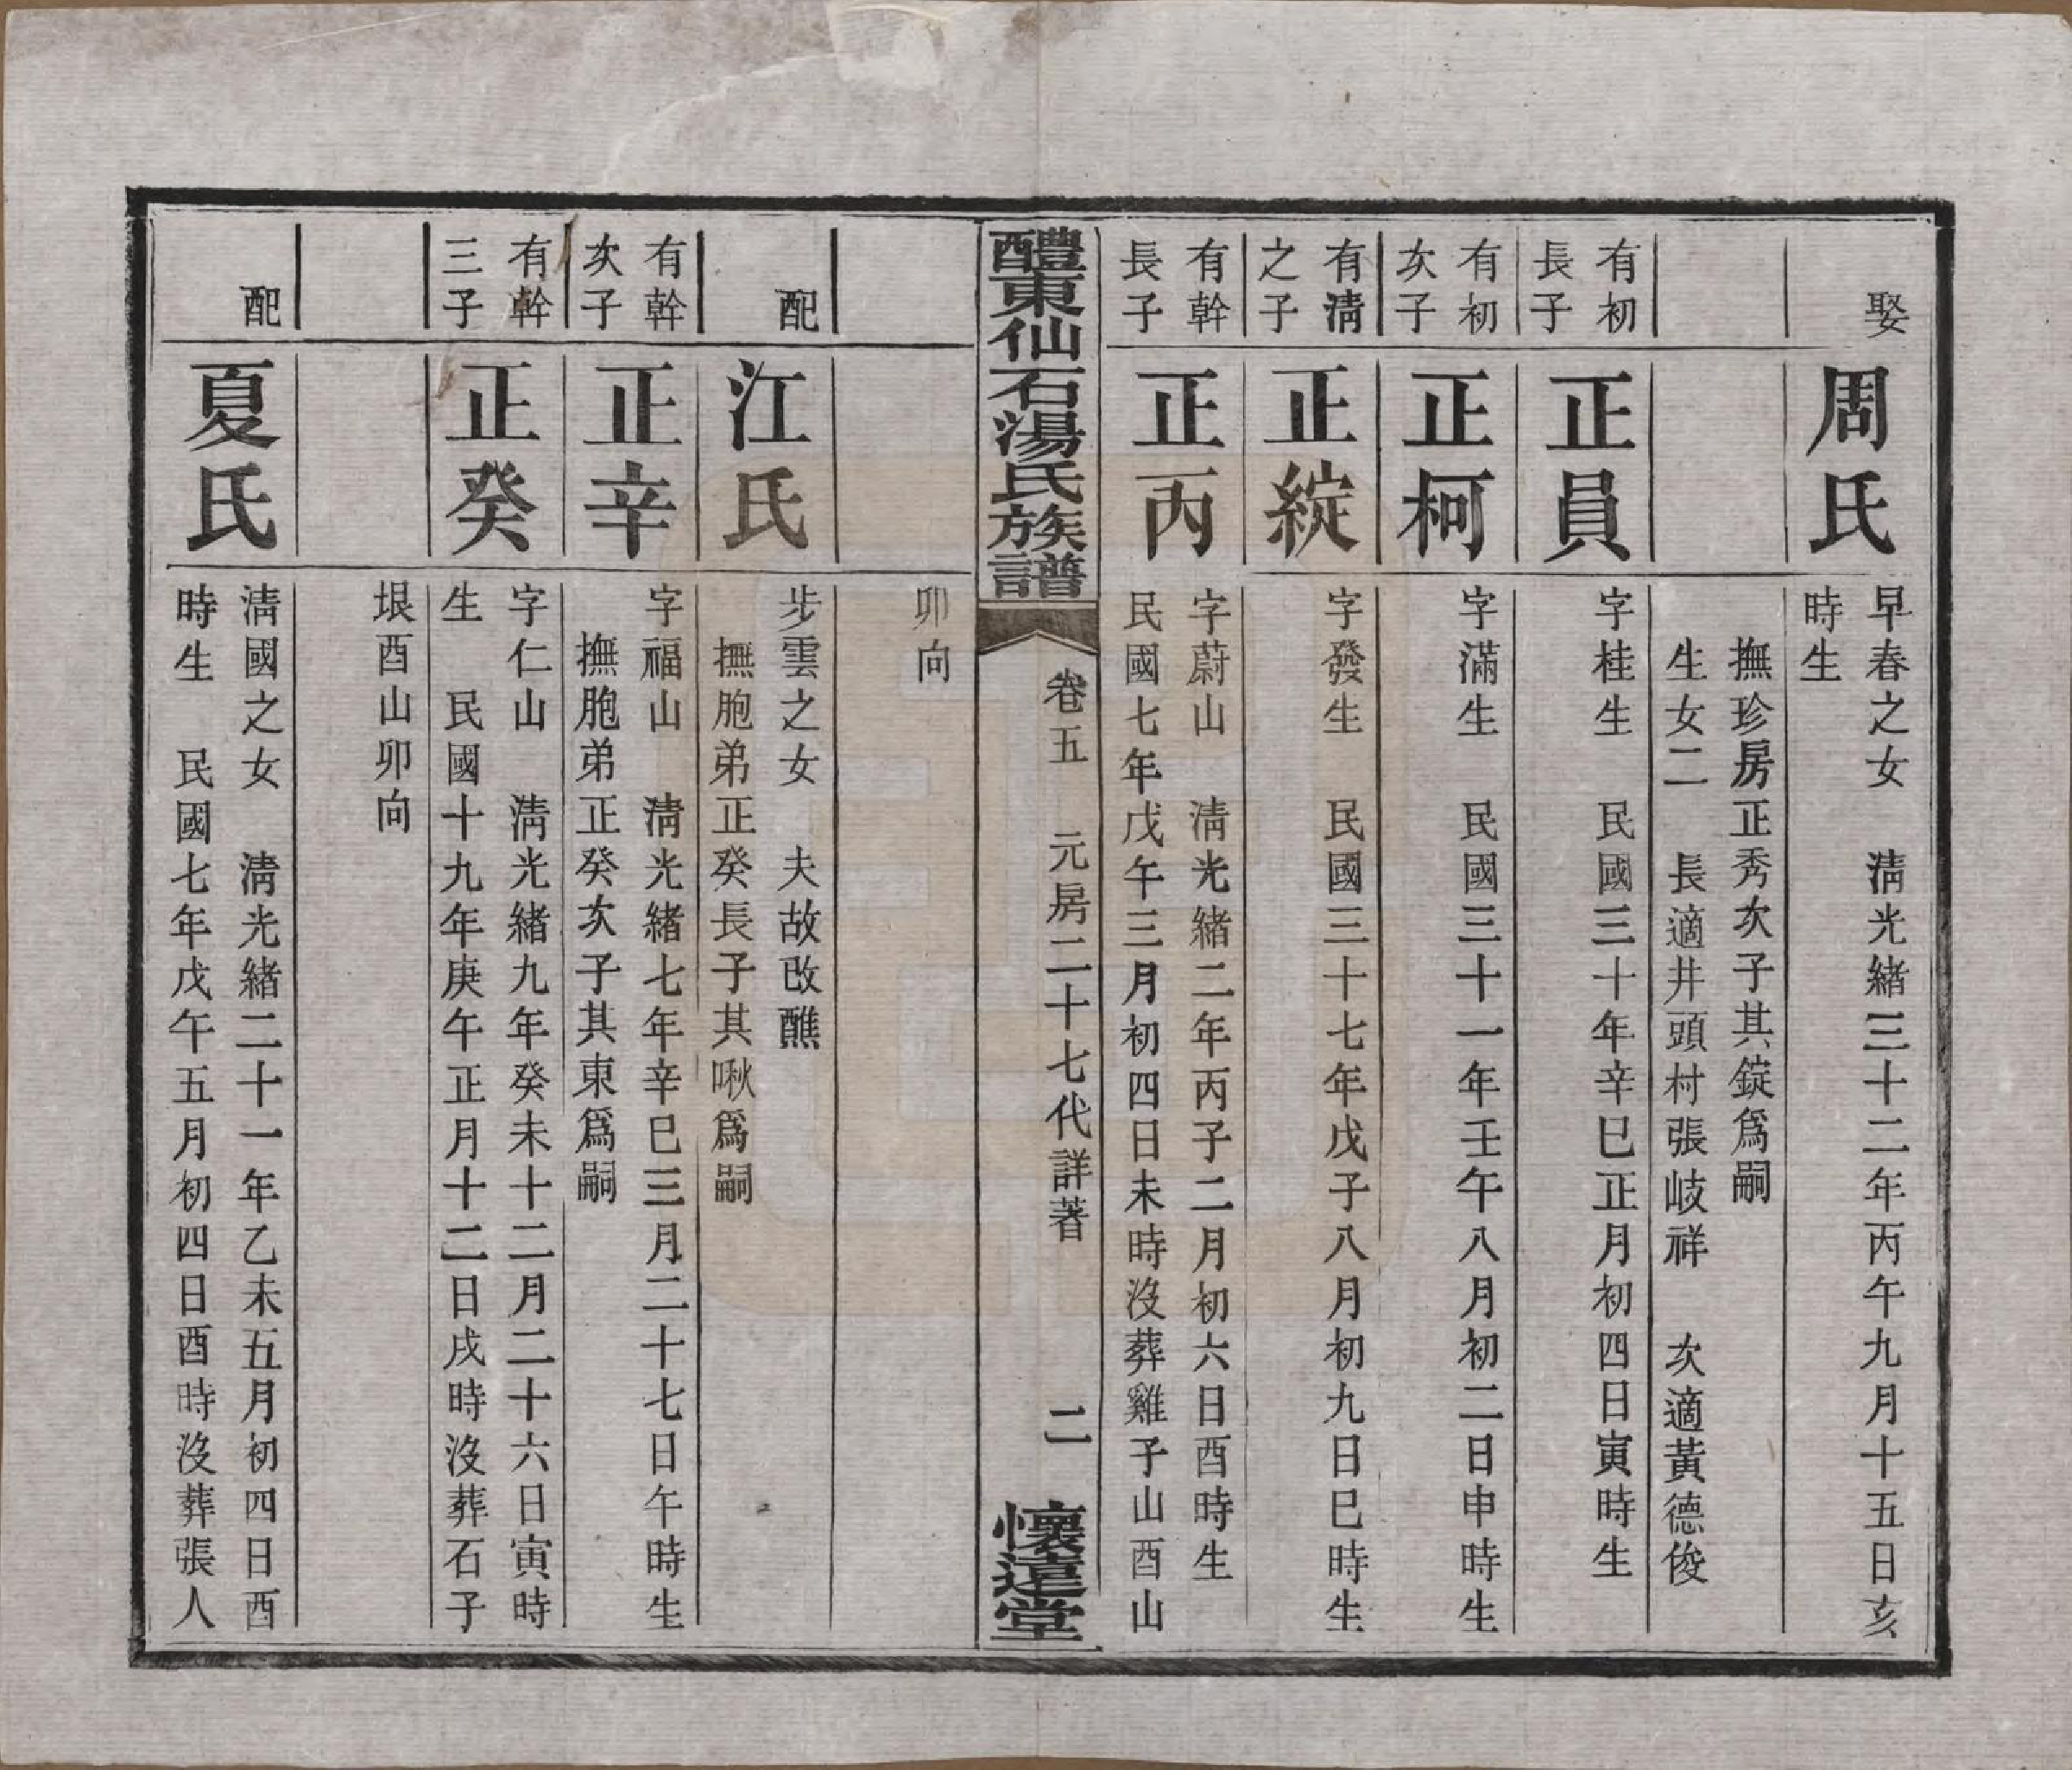 娶
周氏
早春之女　淸光緒三十二年丙午九月十五日亥
時生
撫珍房正秀次子其錠爲嗣
生女二　長適井頭村張岐祥　次適黃德俊
有初
長子
正員
字桂生　民國三十年辛巳正月初四日寅時生
有初
次子
正柯
字滿生　民國三十一年壬午八月初二日申時生
有淸
之子
正綻
字發生　民國三十七年戊子八月初九日巳時生
有幹
長子
正丙
字蔚山　淸光緒二年丙子二月初六日酉時生
民國七年戊午三月初四日未時沒葬雞子山酉山
醴東仙石湯氏族譜
卷五　元房二十七代詳著
二
懷遠堂
卯向
配
江氏
步雲之女　夫故改醮
撫胞弟正癸長子其啾爲嗣
有幹
次子
正辛
字福山　淸光緒七年辛巳三月二十七日午時生
撫胞弟正癸次子其東爲嗣
有幹
三子
正癸
字仁山　淸光緒九年癸未十二月二十六日寅時
生　民國十九年庚午正月十二日戌時沒葬石子
垠酉山卯向
配
夏氏
淸國之女　淸光緒二十一年乙未五月初四日酉
時生　民國七年戊午五月初四日酉時沒葬張人